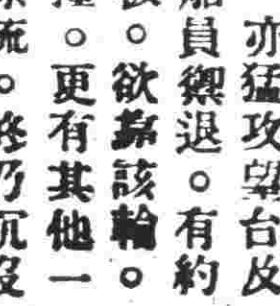 亦猛攻望台及
船員禦退。有約
。欲靠該輪。
。更有其他一
流。終乃沉沒